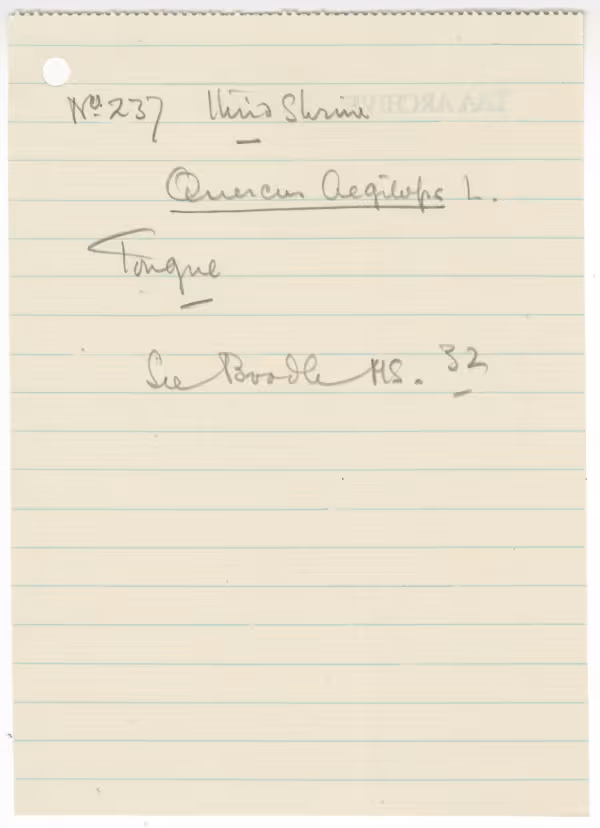 Nº 237 Shrine
Quercus Aegilops L.
Tongue
See Boodle MS. 32